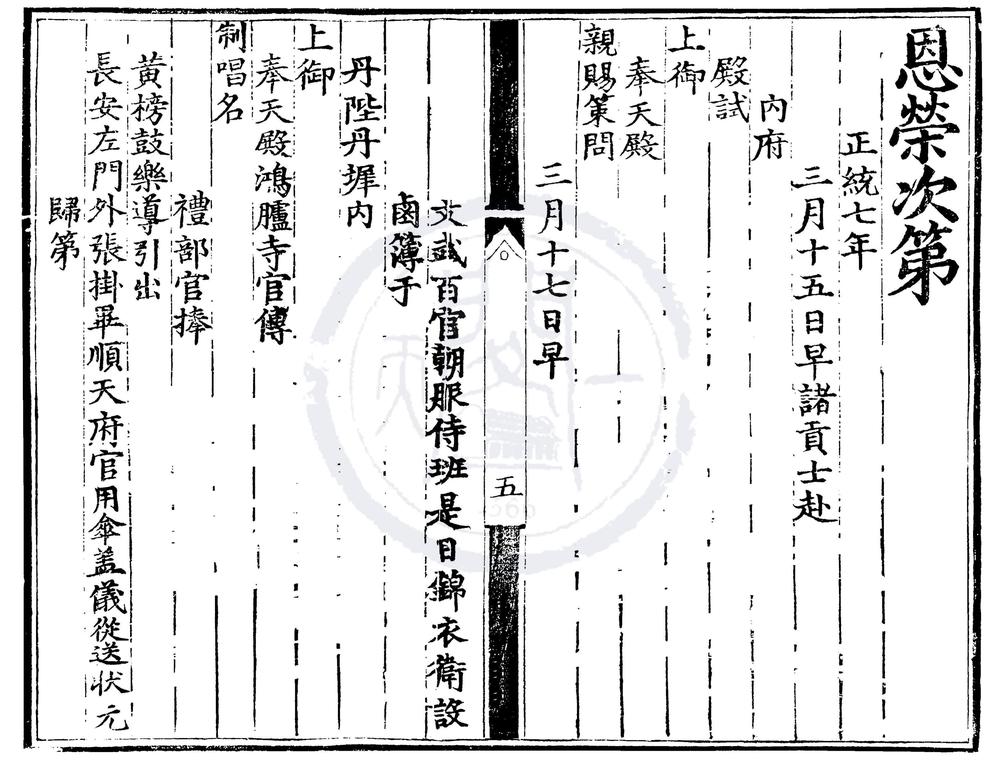 恩榮次第
正統七年
三月十五日早諸貢士赴
內府
殿試
上御
奉天殿
親賜策問
三月十七日早
五
文武百官朝服侍班是日錦衣衛設
鹵簿于
丹陛丹墀內
上御
奉天殿鴻臚寺官傳
制唱名
禮部官捧
黃榜鼓樂導引出
長安左門外張掛畢順天府官用傘盖儀從送狀元
歸第